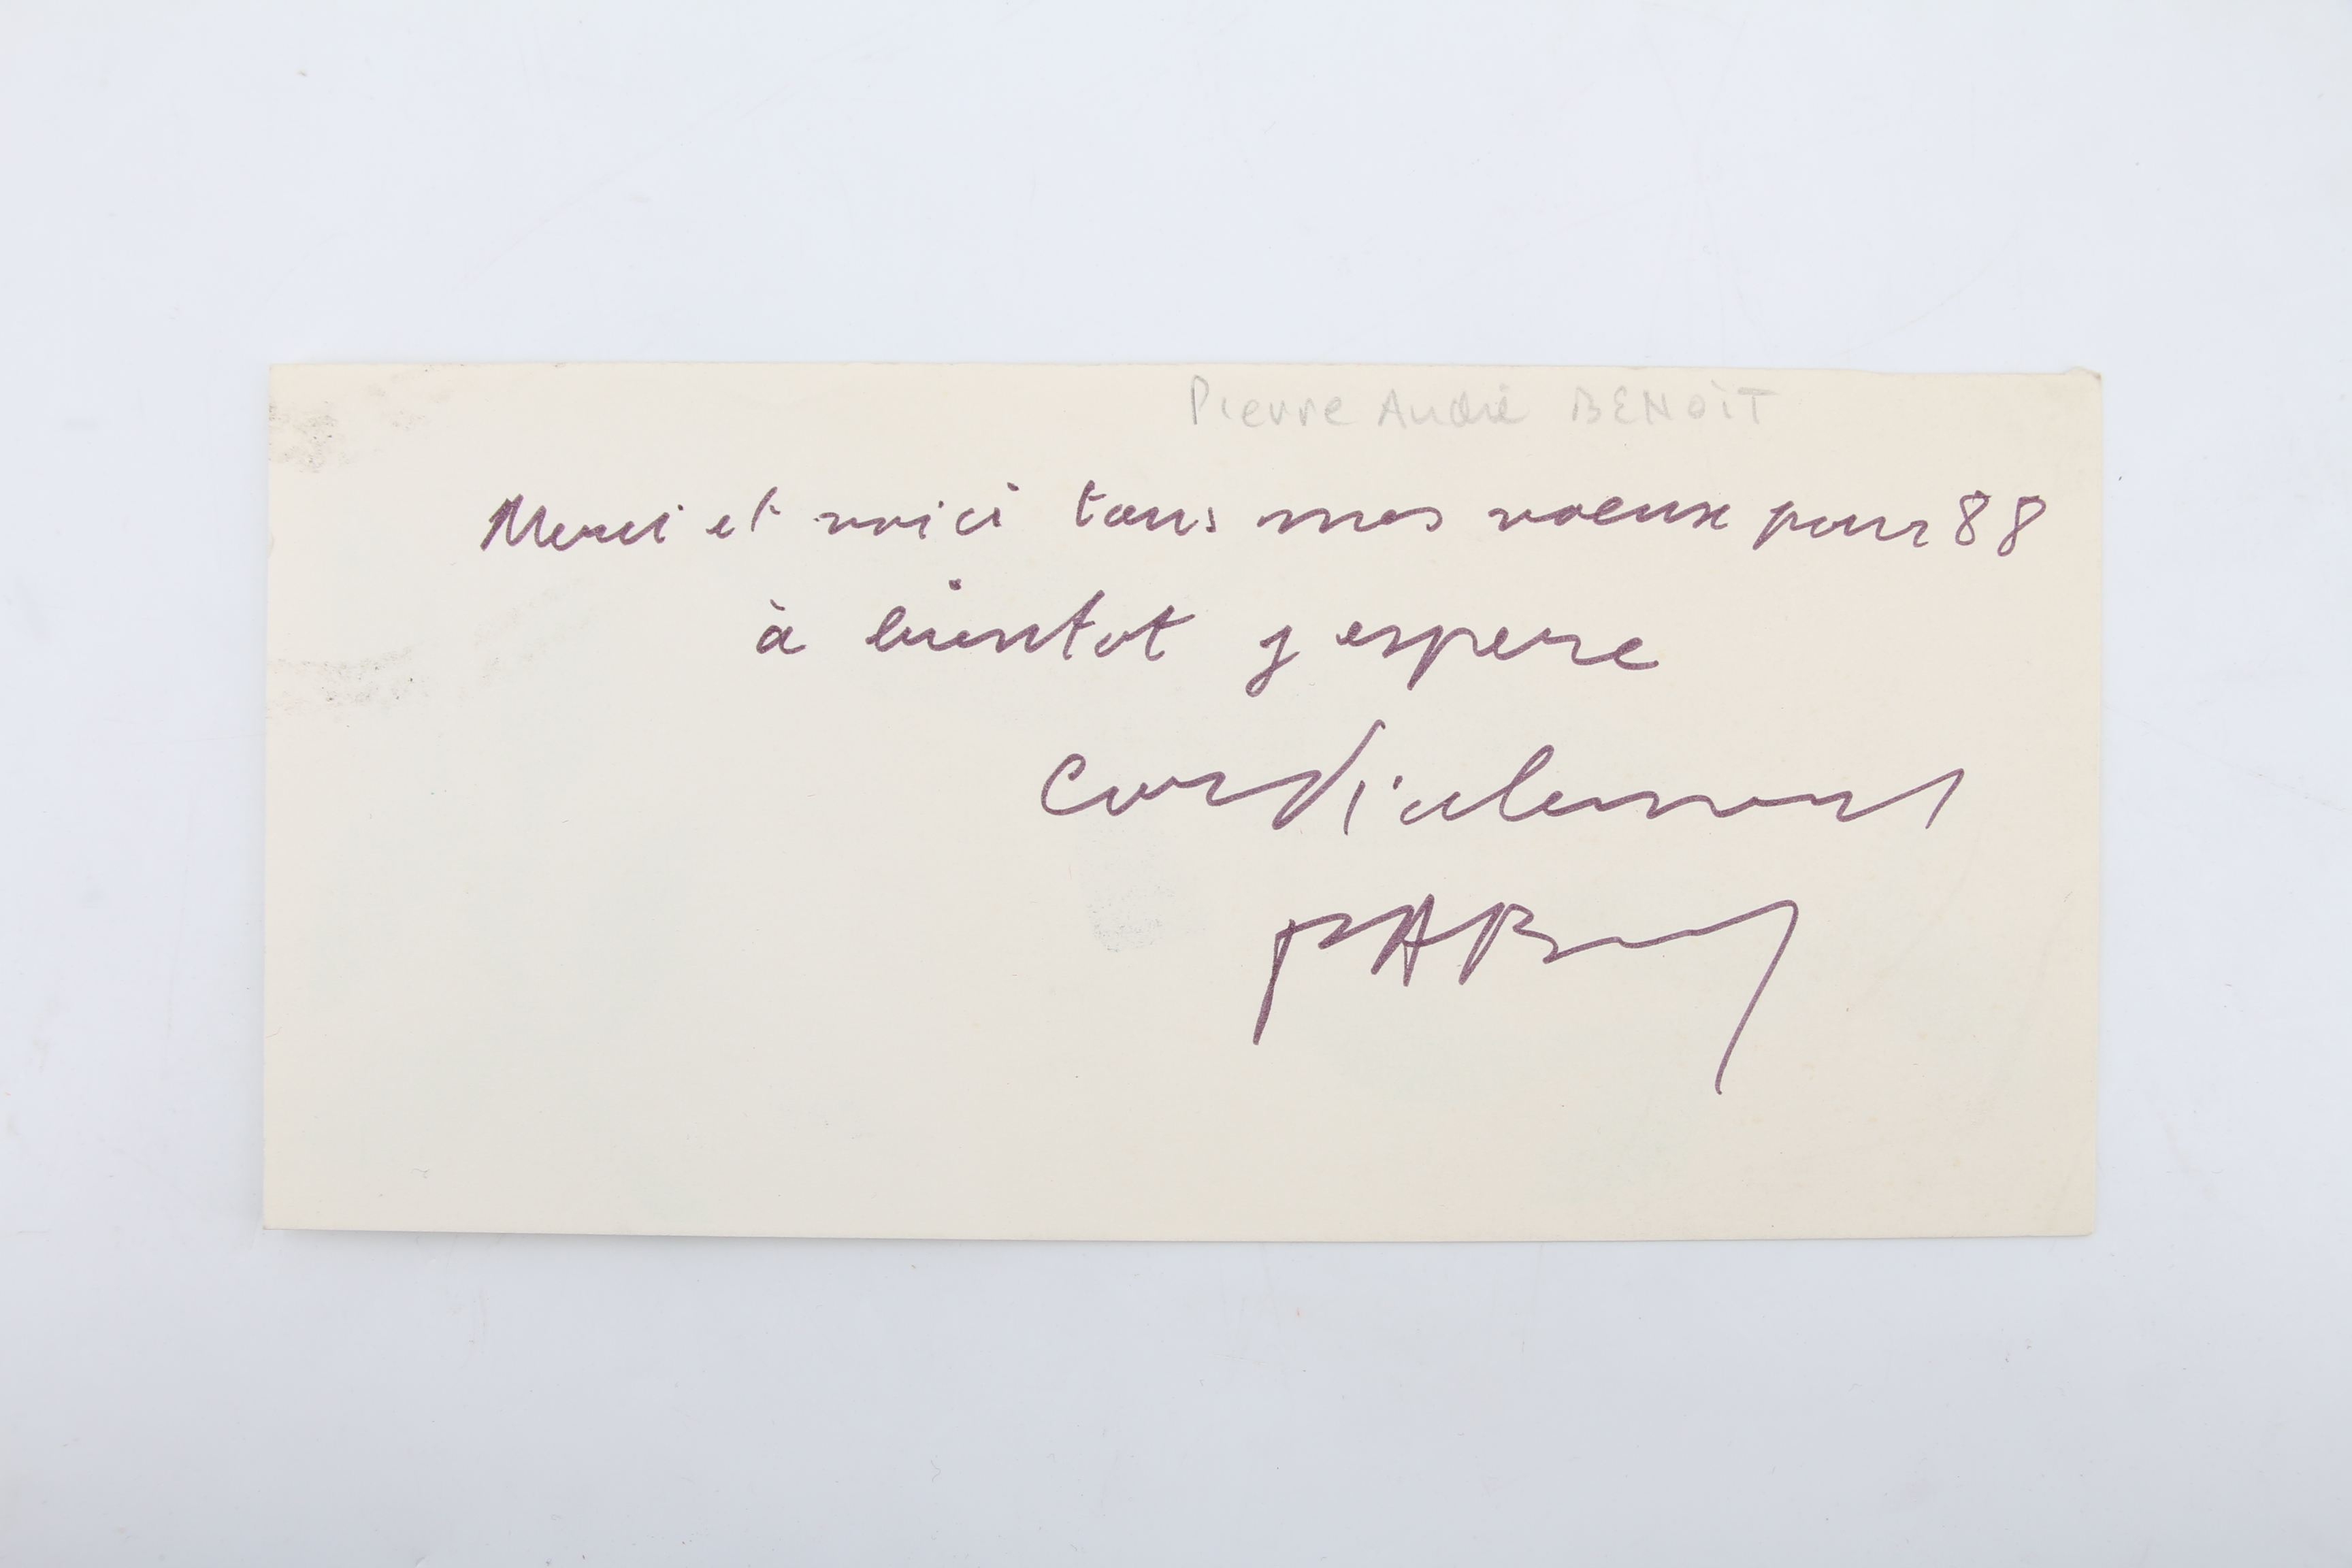 Pierre André BENOIT
Merci et voici tous mes voeux pour 88
à bientot j espere
Cordialement
PAB